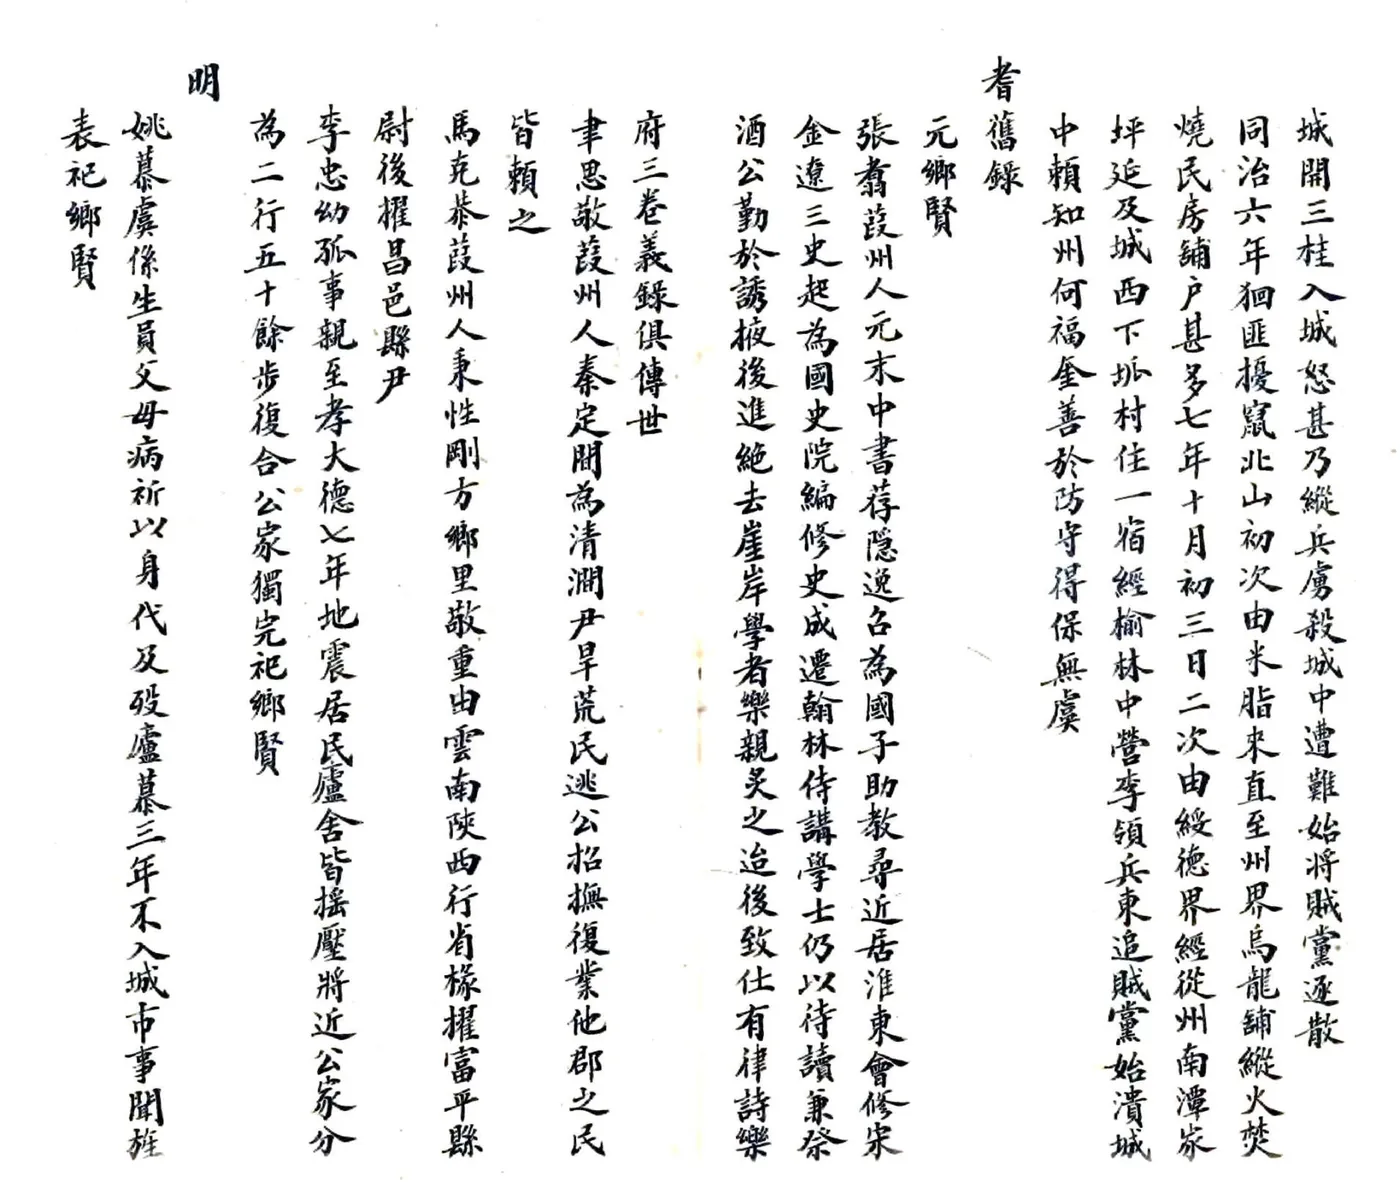 城開三桂入城怒甚乃縱兵虜殺城中遭難始將賊黨逐散
同治六年狪匪擾竄北山初次由米脂來直至州界烏龍舖縱火焚
燒民房舖户甚多七年十月初三日二次由綏德界經從州南潭家
坪延及城西下坬村住一宿經榆林中營李領兵東追賊黨始潰城
中賴知州何福奎善於防守得保無虞
耆舊錄
元鄉賢
張翥葭州人元末中書荐隱逸召為國子助教尋近居淮東會修宋
金遼三史起為國史院編修史成遷翰林侍講學士仍以待讀兼祭
酒公勤於誘掖後進絶去崖岸學者樂親炙之迨後致仕有律詩樂
府三卷義錄俱傳世
聿思敬葭州人秦定間為清澗尹旱荒民逃公招撫復業他郡之民
皆賴之
馬克恭葭州人秉性剛方鄉里敬重由雲南陝西行省椽擢富平縣
尉後擢昌邑縣尹
李忠幼孤事親至孝大德七年地震居民廬舍皆摇壓將近公家分
為二行五十餘步復合公家獨完祀鄉賢
明
姚慕虞係生員父母病祈以身代及殁廬慕三年不入城市事聞旌
表祀鄉賢